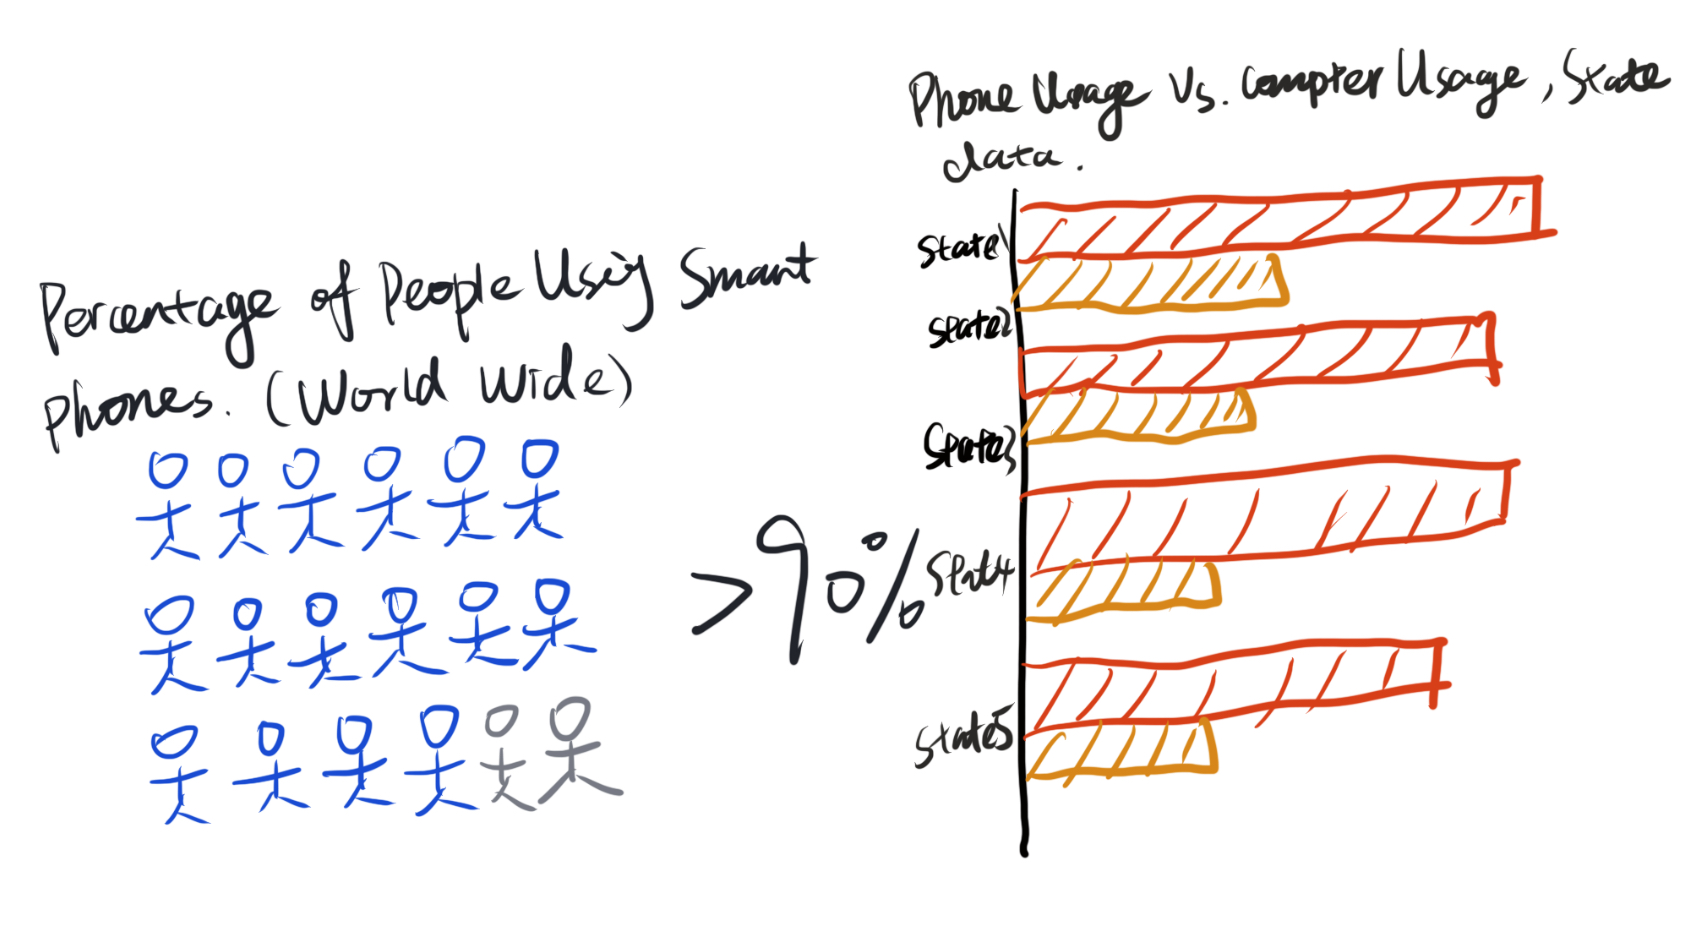 Percentage of People Using Smart
phones. (World Wide)
>90%
Phone Usage Vs. Compter Usage, State
data.
State1
State2
State3
Stat4
State5